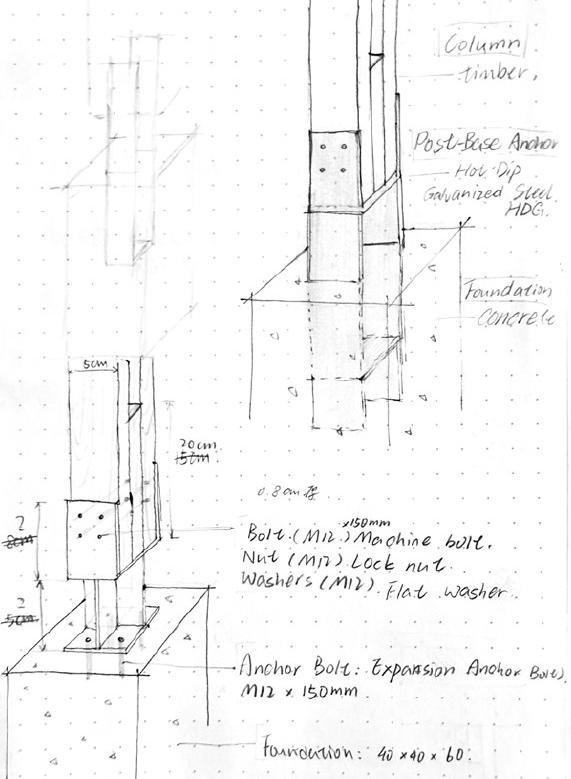 Column
timber.
Post-Base Anchor
Hot-Dip
Galvanized Steel.
HDG.
Foundation
Concrete
5cm
20cm
15cm
0.8cm 厚
2
8cm
2
5cm
x150mm
Bolt.(M12.) Machine bolt.
Nut (M12). Lock nut.
Washers (M12). Flat washer.
Anchor Bolt: Expansion Anchor Bolt)
M12 x 150mm.
Foundation: 40 x 40 x 60.